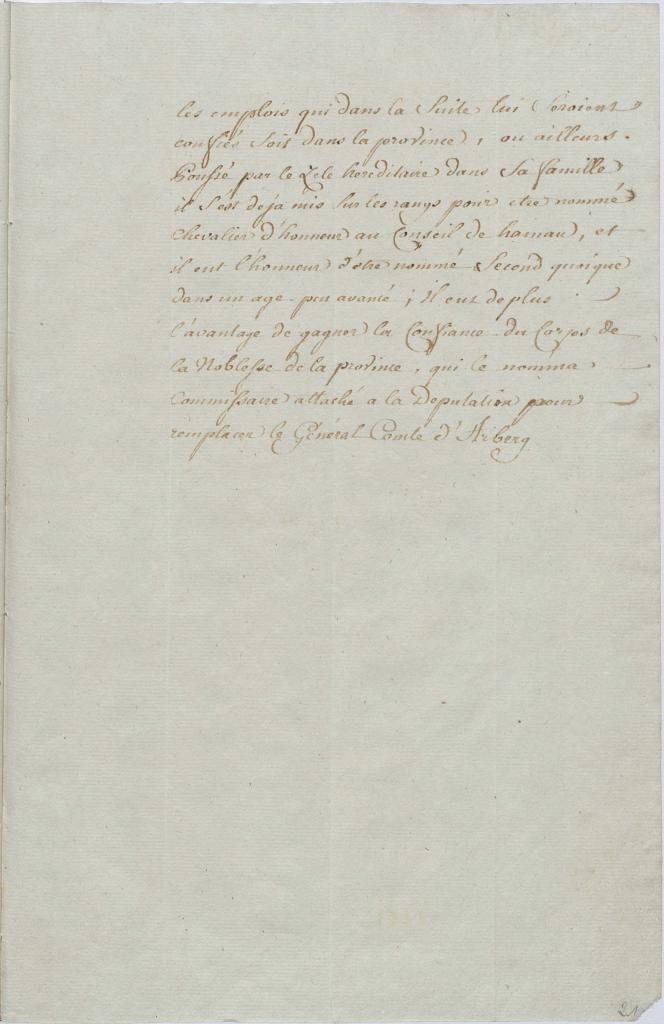 les emplois qui dans la Suite lui Seroient
confiés Soit dans la province, ou ailleurs.
Poussé par le Zele hereditaire dans Sa famille
il S'est deja mis Sur les rangs pour etre nommé
Chevalier d'honneur au Conseil de hainau, et
il eut l'honneur d'etre nommé Second quoique
dans un age peu avancé; Il eut de plus
l'avantage de gagner la Confiance du Corps de
la Noblesse de la province, qui le nomma
Commissaire attaché a la Deputation pour
remplacer le Général Comte d'Arberg
21